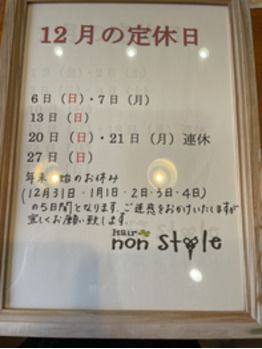 12月の定休日
6日（日）・7日（月）
13日（日）
20日（日）・21日（月）連休
27日（日）
年末年始のお休み
(12月31日・1月1日・2日・3日・4日)
の5日間となります。ご迷惑をおかけいたしますが
宜しくお願い致します。
Hair
non Style